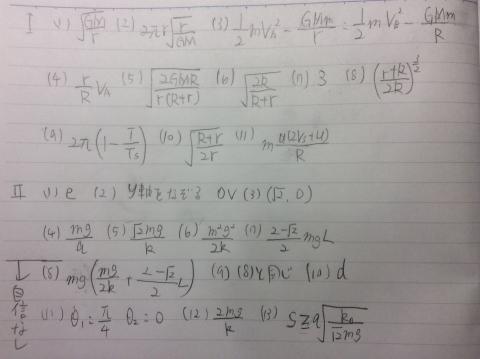 I (1) √(GM/r) (2) 2πr√(r/GM) (3) 1/2 mV_A² - GMm/r = 1/2 mV_B² - GMm/R
(4) r/R V_A (5) √(2GMR/r(R+r)) (6) √(2R/R+r) (7) 3 (8) (r+R/2R)^(3/2)
(9) 2π(1 - T/Ts) (10) √(R+r/2r) (11) m u(2Vs+u)/R
II (1) e (2) y軸をなぞる 0V (3) (√2, 0)
(4) mg/a (5) √2mg/k (6) m²g²/2k (7) 2-√2/2 mgL
(8) mg(mg/2k + 2-√2/2 L) (9) (8)と同じ (10) d
(11) θ₁ = π/4 θ₂ = 0 (12) 2mg/k (13)
↓自信なし